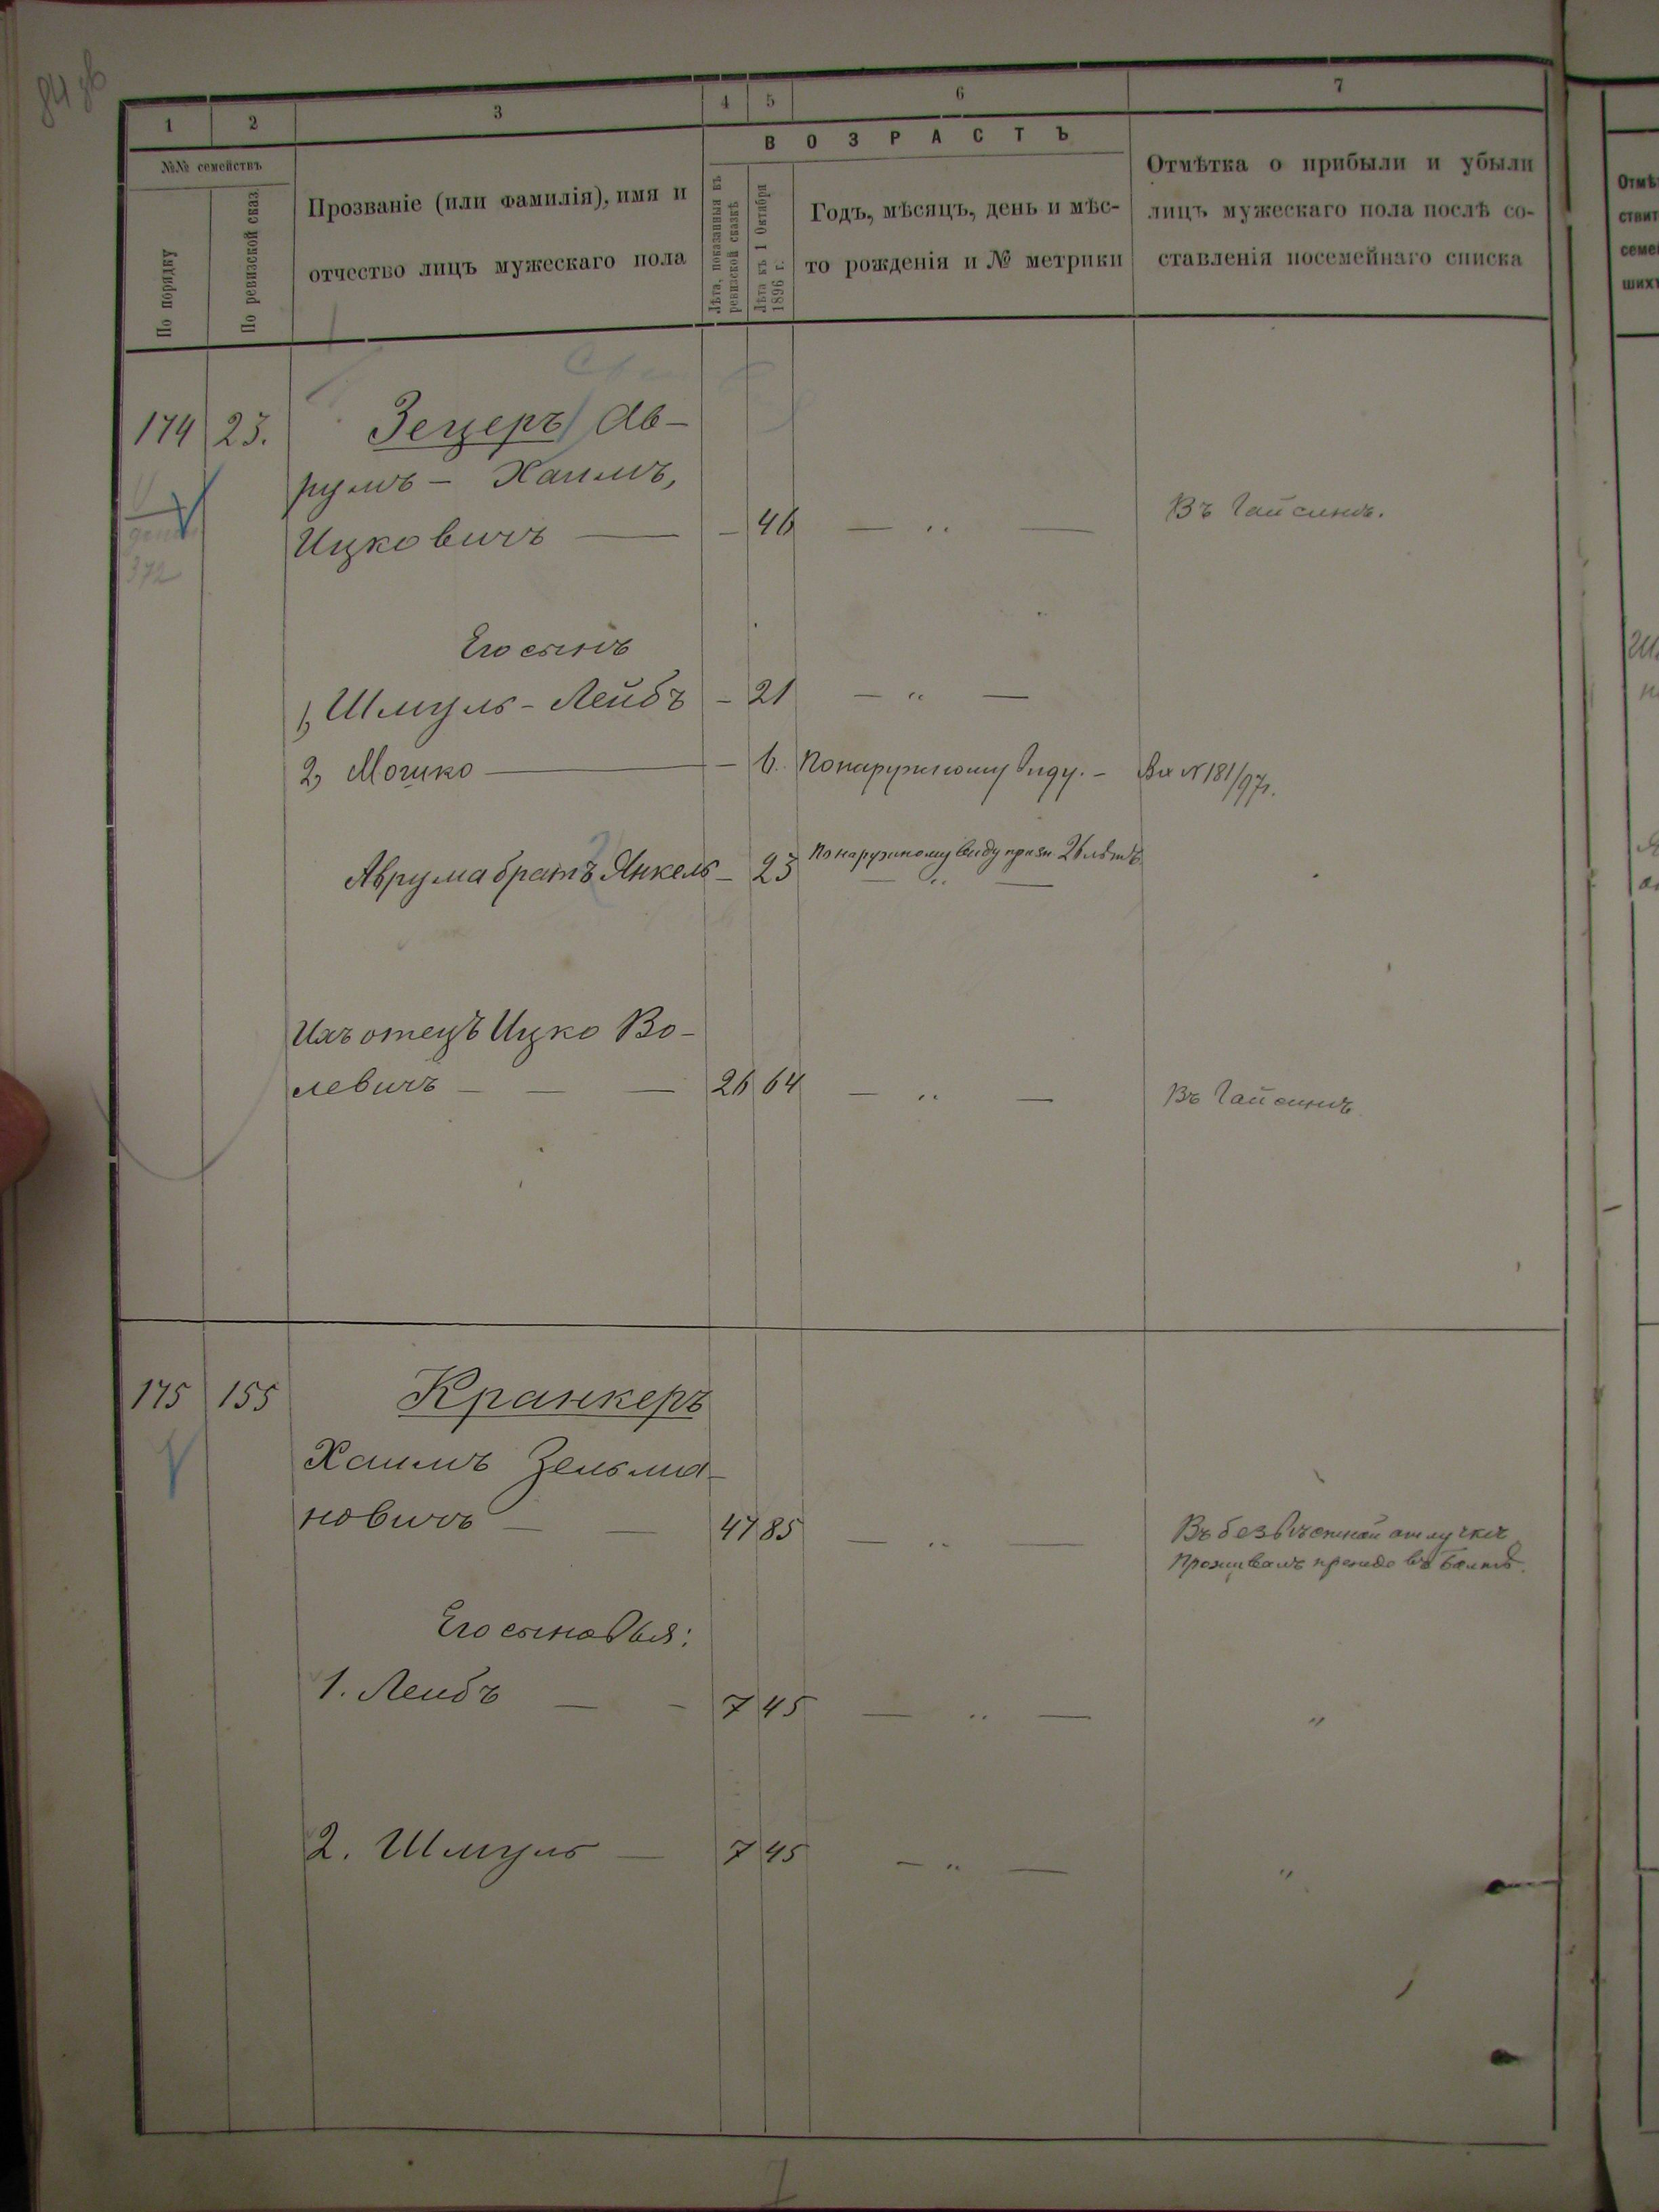 84 об
1 2 3 4 5 6 7
№№ семействъ
По порядку
По ревизской сказ.
Прозваніе (или фамилія), имя и
отчество лицъ мужескаго пола
ВОЗРАСТЪ
Лѣта, показанныя въ
ревизской сказкѣ
Лѣта къ 1 Октября
1896 г.
Годъ, мѣсяцъ, день и мѣс-
то рожденія и № метрики
Отмѣтка о прибыли и убыли
лицъ мужескаго пола послѣ со-
ставленія посемейнаго списка
174 23. Зецеръ Ав-
румъ - Хаимъ,
Ицковичъ — - 46 — „ — Въ Гайсинѣ.
372
Его сынъ
1, Шмуль-Лейбъ - 21 — „ —
2, Мошко — - 6. По наружному виду. - Вх N 181/97г.
Аврума братъ Янкель - 23 По наружному виду призн 26 лѣтъ
— „ —
Ихъ отецъ Ицко Во-
левичъ — — — 26 64 — „ — Въ Гайсинѣ
175 155 Кранкеръ
Хаимъ Зельма-
новичъ — — 47 85 — „ — Въ безвѣстной отлучкѣ
Проживалъ прежде въ Балтѣ.
Его сыновья:
1. Лейбъ — - 7 45 — „ — „
2. Шмуль — 7 45 — „ — „